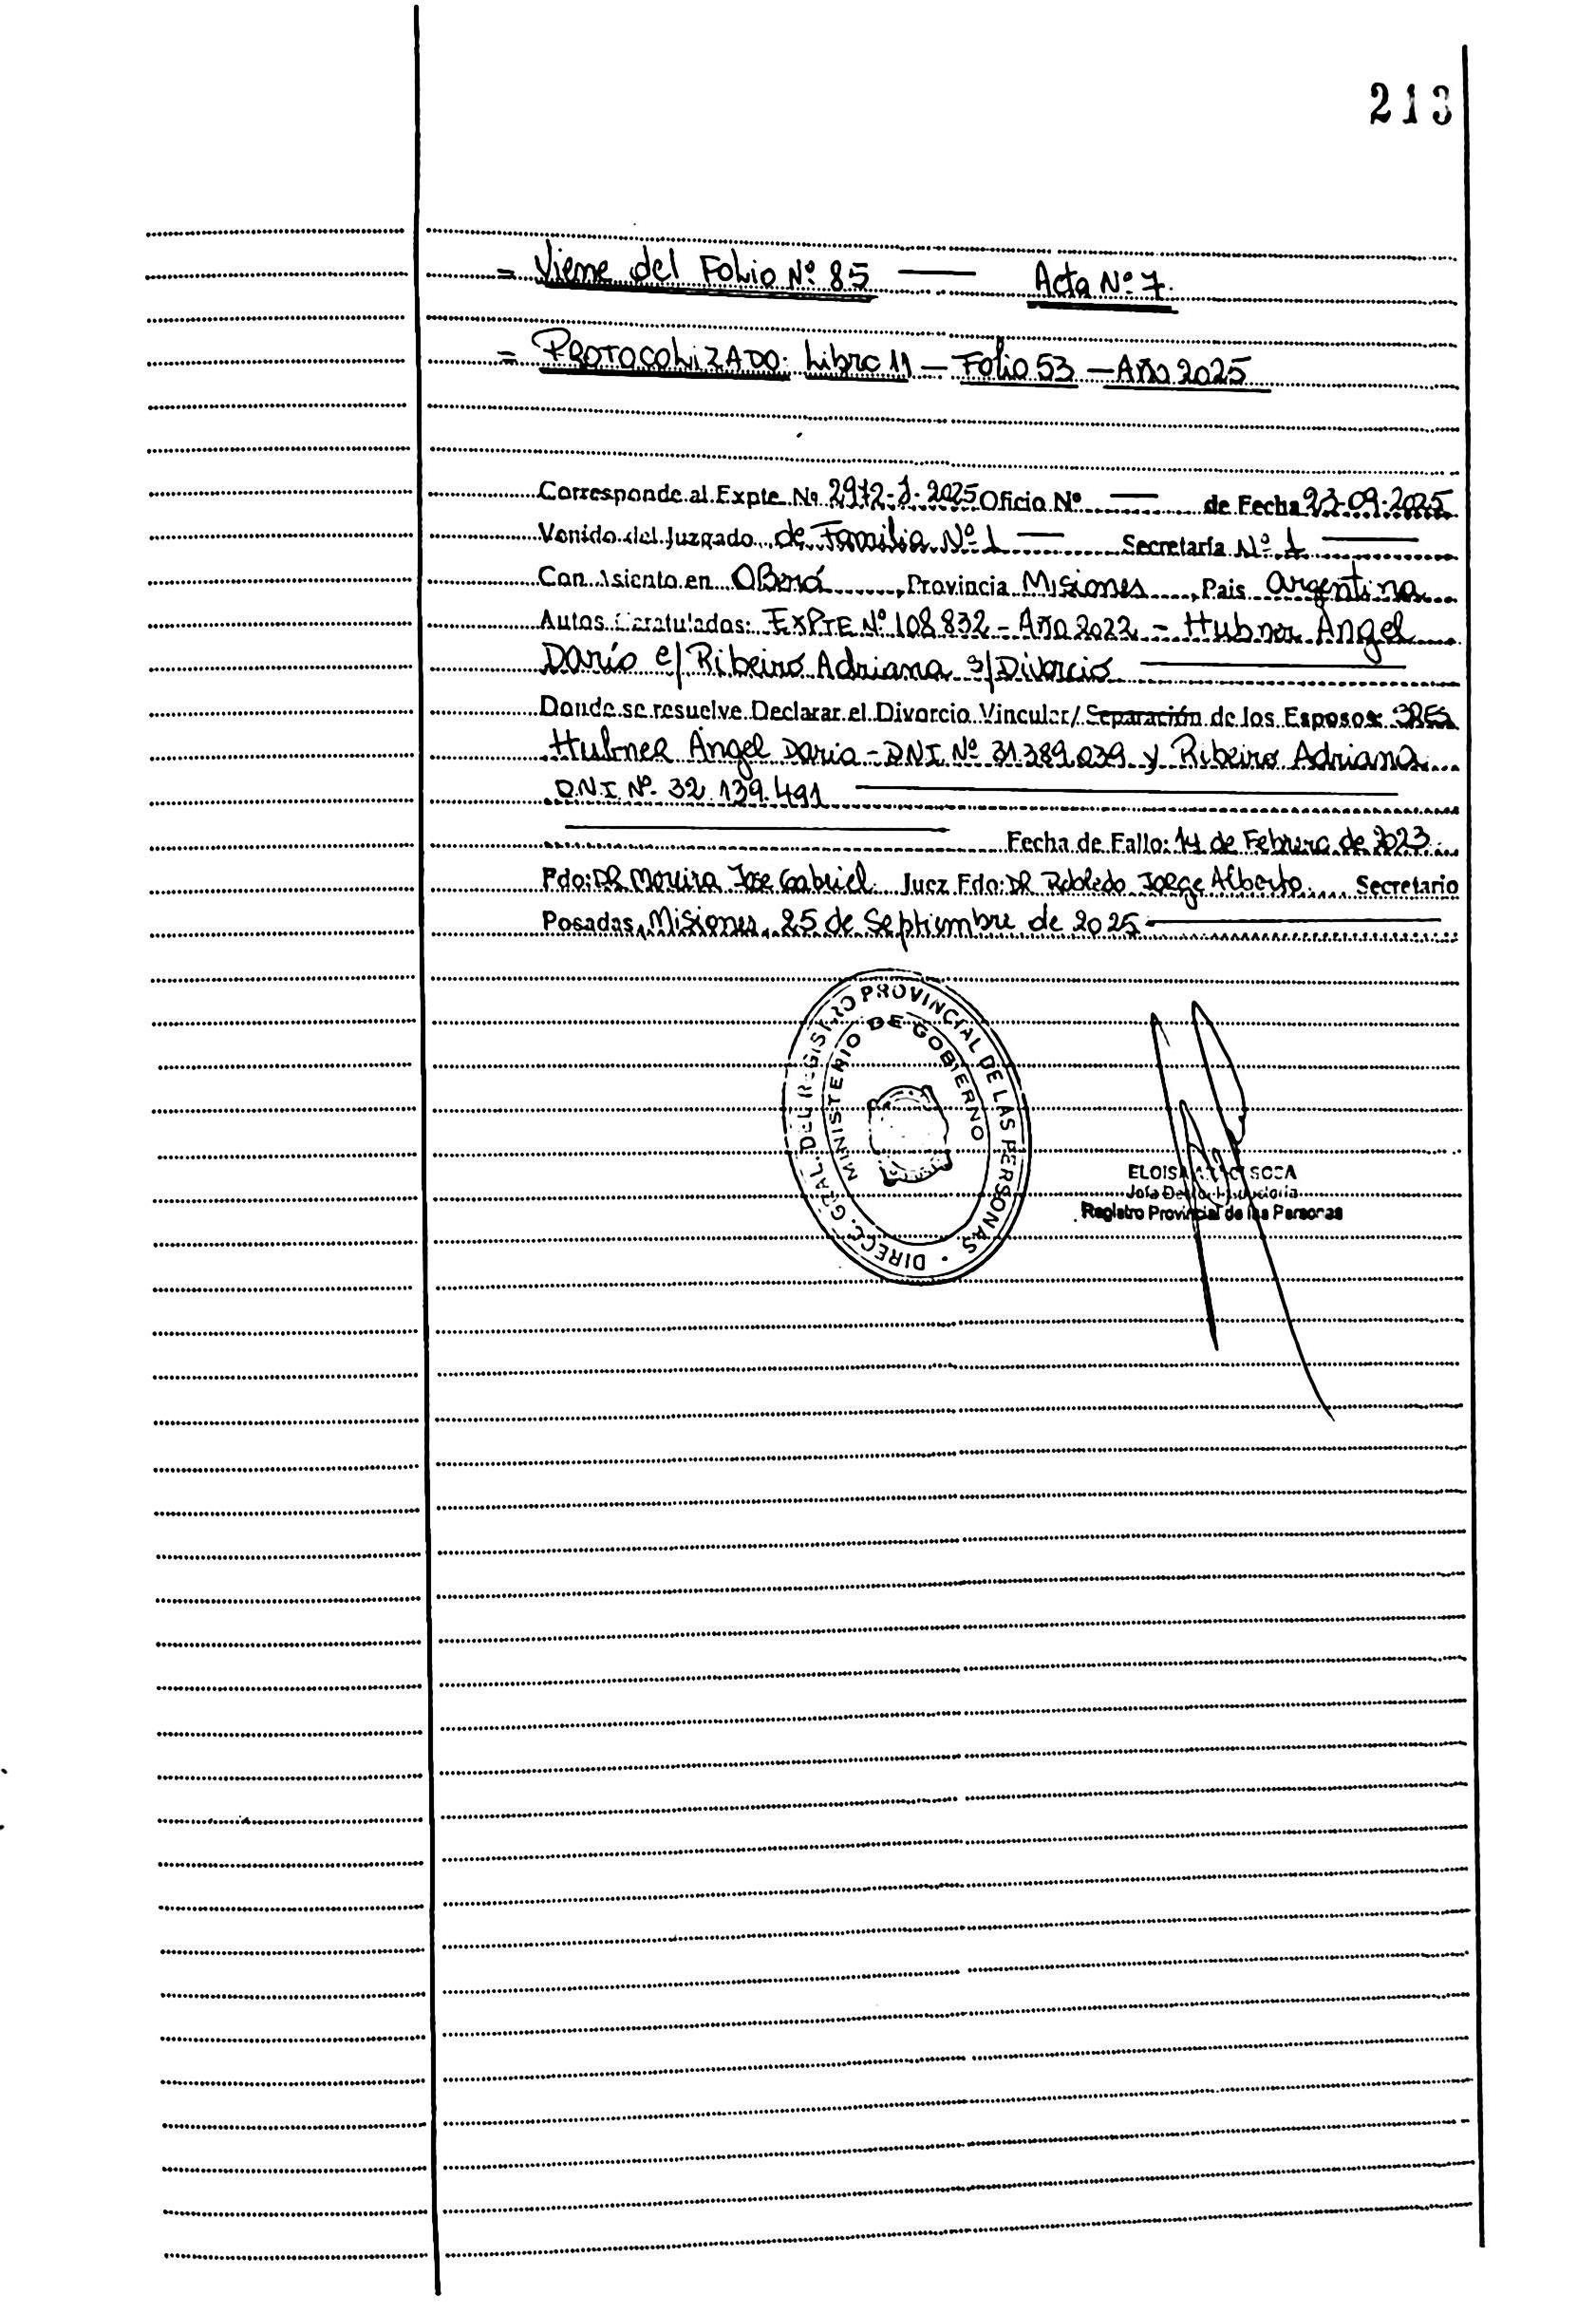 213
= Viene del Folio Nº 85 — Acta Nº 7.
= PROTOCOLIZADO: Libro 11 — Folio 53 — Año 2025
Corresponde al Expte Nº 2972-J-2025 Oficio Nº — de Fecha 23-09-2025
Venido del Juzgado de Familia Nº 1 — Secretaría Nº 1 —
Con Asiento en OBerá, Provincia Misiones, Pais Argentina
Autos Caratulados: EXPTE Nº 108.832 - Año 2022 - Hubner Ángel
Darío c/ Ribeiro Adriana s/ Divorcio —
Donde se resuelve Declarar el Divorcio Vincular/ Separación de los Esposos: SRES
Hubner Ángel Dario - DNI Nº 31.389.039 y Ribeiro Adriana
D.N.I Nº 32.139.491 —
— Fecha de Fallo: 14 de Febrero de 2023
Fdo: DR Moreira Jose Gabriel Juez Fdo: DR Robledo Jorge Alberto Secretario
Posadas, Misiones, 25 de Septiembre de 2025 —
DIRECC. GRAL. DEL REGISTRO PROVINCIAL DE LAS PERSONAS
MINISTERIO DE GOBIERNO
ELOISA SOSA
Registro Provincial de las Personas